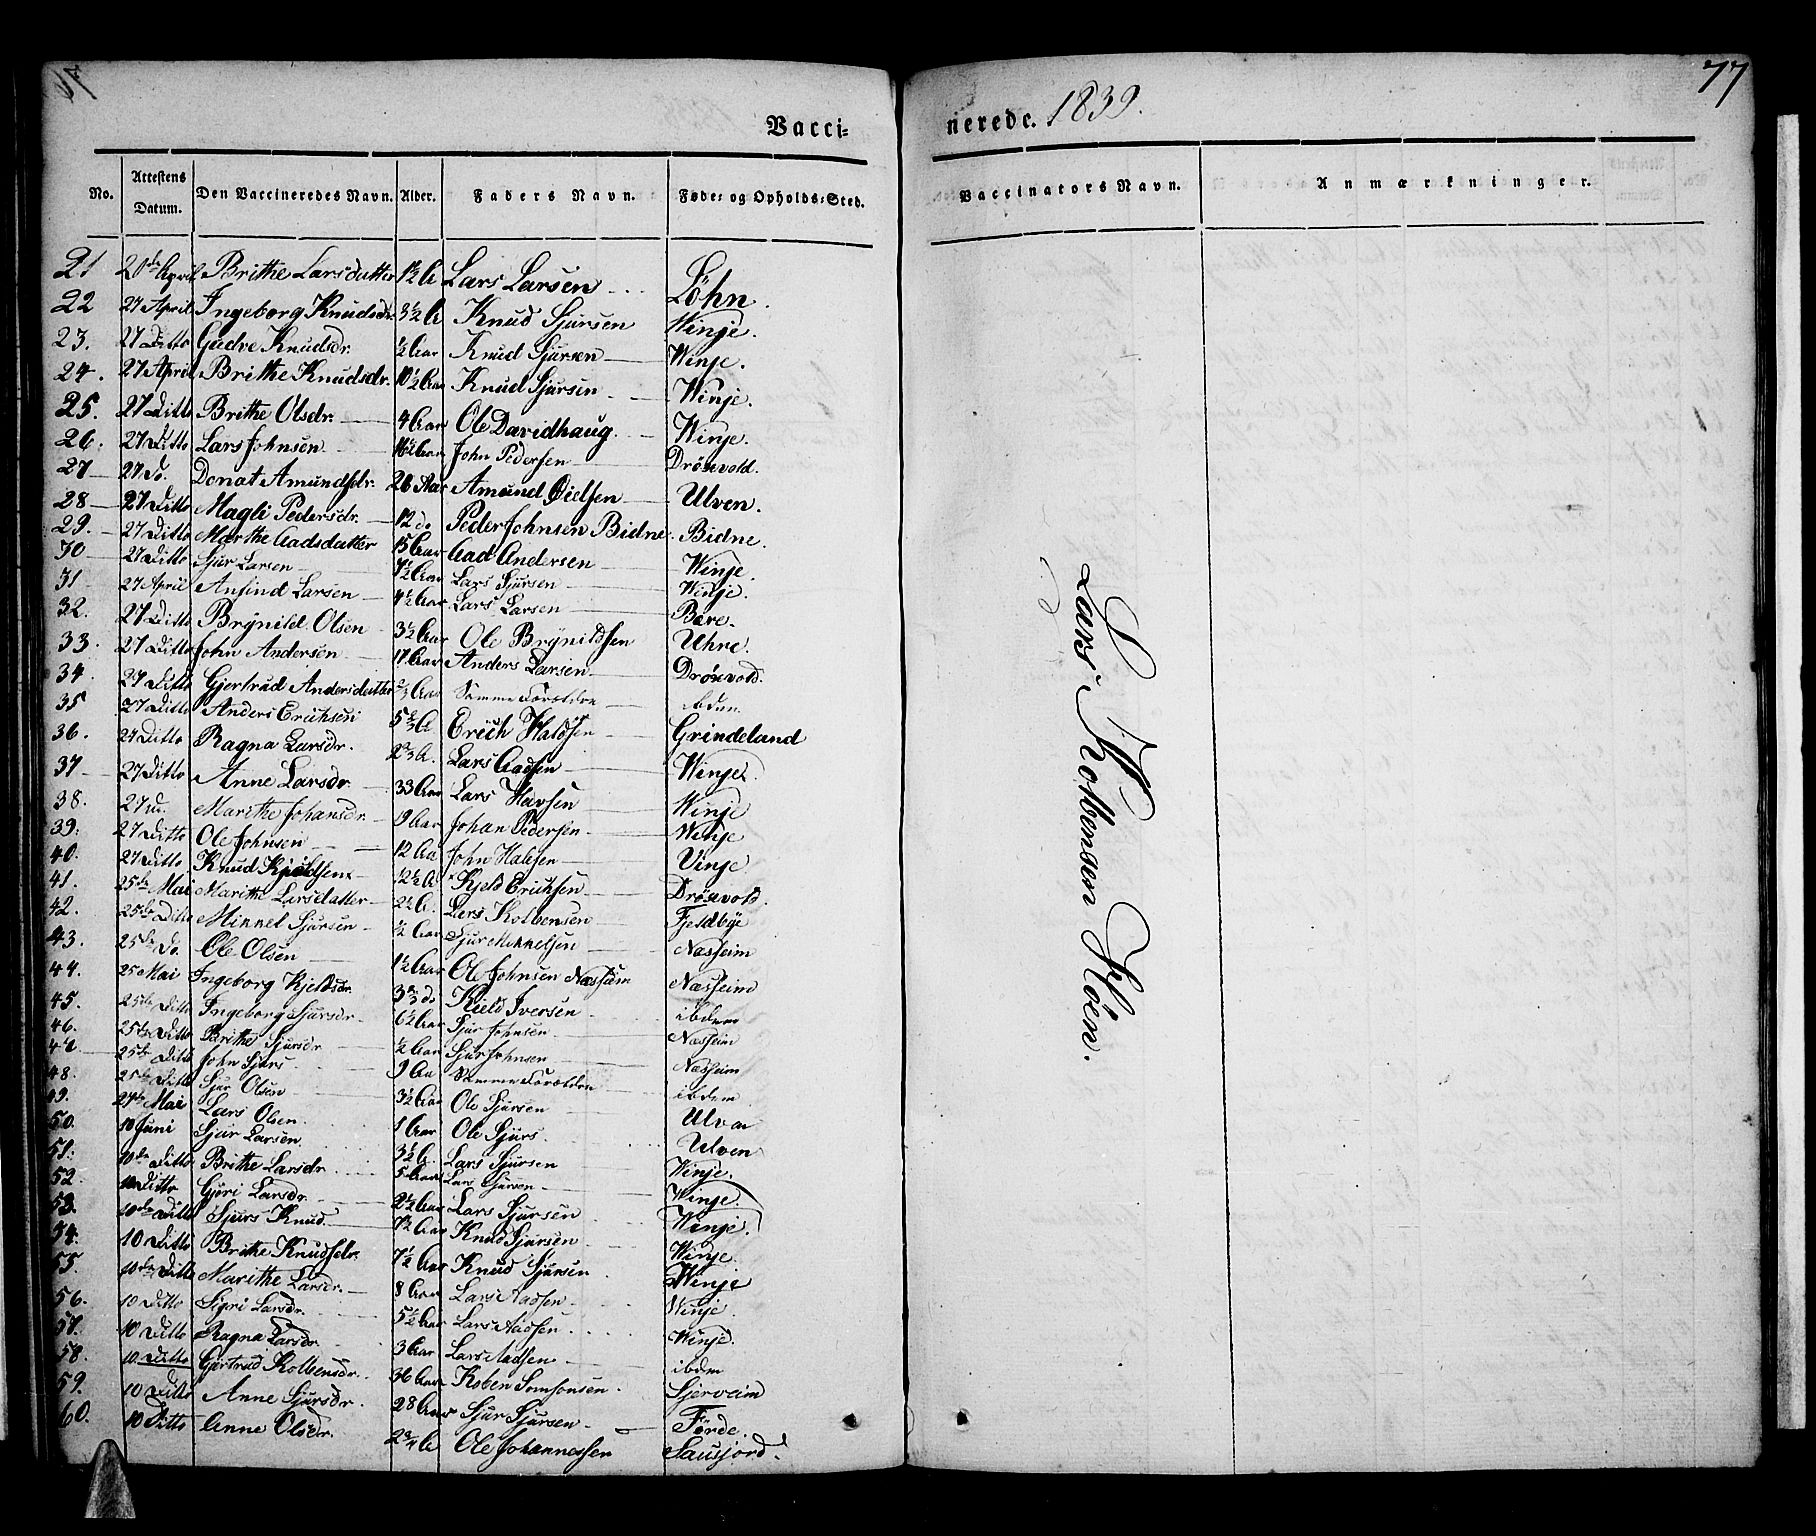 77
1839.
Vacci-
nerede.
No. Attestens Datum. Den Vaccineredes Navn. Alder. Faders Navn. Føde- og Opholds-Sted.
Vaccinators Navn. Anmærkninger.
21 20de April Brithe Larsdatter 1½ A Lars Larsen Löhn.
22 27 April Ingeborg Knudsdr. 3½ A Knud Sjursen Winje.
23. 27 Ditto Gudve Knudsdr. ½ Aar Knud Sjursen Winje.
24. 27 April Brithe Knudsdr. 10½ Aar Knud Sjursen Winje.
25. 27 Ditto Brithe Olsdr. 4 Aar Ole Davidhaug. Winje.
26. 27 Ditto Lars Johnsen 16½ Aar John Pedersen Drösvold.
27 27 Do. Donat Amundsdr. 26 Aar Amund Ulven.
28 27 Ditto Magli Pedersdr. 12 do Peder Johnsen Bidne. Bidne.
29. 27 Ditto Marthe Aadsdatter 15 Aar Aad Andersen Winje.
30 27 Ditto Sjur Larsen 7½ Aar Lars Sjursen Winje.
31 27 April Anfind Larsen 4½ Aar Lars Larsen
32. 27 Ditto Brynild Olsen 3½ Aar Ole Brynildsen Uhre.
33. 27 Ditto John Andersen 17 Aar Anders Larsen Drösvold.
34. 27 Ditto Gjertrud Andersdatter Aar Samme Forældre ibdm.
35 27 Ditto Anders Erichsen Erich Grindeland
36. 27 Ditto Ragna Larsdr. Lars Aadsen Winje.
37 27 Ditto Anne Larsdr. 33 Aar Lars Winje
38. 27 Marithe Johansdr. 9 Aar Johan Pedersen Winje
39. 27 Ditto Ole Johnsen 12 Aa John Vinje
40. 27 Ditto Knud Kjeldsen 12½ A Kjeld Erichsen Drösvold.
41. 25de Mai Marithe Larsdatter 2½ A. Lars Kolbensen Fjeldbye
42. 25de Ditto Mikkel Sjursen ½ Aar Sjur Mikkelsen Næsheim
43. 25de Do. Ole Olsen 1½ Aar Ole Johnsen Næsheim Næsheim
44. 25 Mai Ingeborg Kjeldsdr. do Kield Iversen ibdem
45. 25de Ditto Ingeborg Sjursdr. 6½ Aar Sjur Johnsen Næsheim
46. 25de Ditto Brithe Sjursdr ½ Aar Sjur Johnsen Næsheim
47 25de Ditto John Sjurs 9 Aa Samme Forældre ibdem
48. 25de Ditto Sjur Olsen 3½ Aar Ole Sjursen Ulven
49. 27de Mai Lars Olsen 1 Aar Ole Sjurs. Ulven
50. 10 Juni Sjur Larsen 3½ A. Lars Sjursen Winje.
51. 10de Ditto Brithe Larsdr. 5 Aar Lars Sjursen Winje.
52. 10 Ditto Gjøri Larsdr. 2½ Aar Lars Sjursen Winje.
53. 10de Ditto Sjurs Knud Aar Knud Sjursen Winje.
54. 10 Ditto Brithe Knudsdr. 7½ Aar Knud Sjursen Winje
55. 10de Ditto Marithe Larsdr. 8 Aar Lars Aadsen Winje
56. 10 Ditto Sigri Larsdr. 5½ Aar Lars Aadsen Winje.
57. 10 Ditto Ragna Larsdr. 3 Aar Lars Aadsen ibdem
58. 10. Ditto Gjertrud Kolbensdr. 36 Aar Kolben Somsonsen.
59. 10 Ditto Anne Sjursdr. 28 Aar Sjur Sjursen Förde.
60. 10 Ditto Anne Olsdr. Ole Johannessen Sausjord.
Lars Kolbensen Klöen.